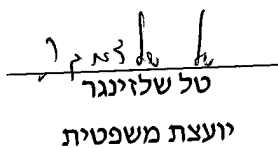 טל שלזינגר
טל שלזינגר
יועצת משפטית